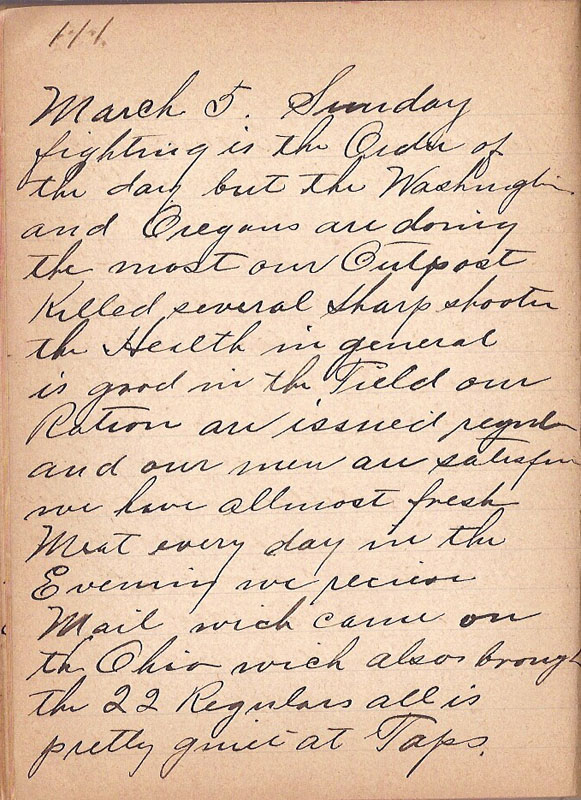 111
March 5. Sunday
fighting is the Order of
the day but the Washingtin
and Oregans are doing
the most our Outpost
Killed several sharp shooter
the Health in general
is good in the Field our
Ration are issued regular
and our men are satisfin
we have allmost fresh
Meat every day in the
Evening we recieve
Mail wich came on
th Ohio wich alsos brought
the 22 Regulars all is
pretty quiet at Taps.